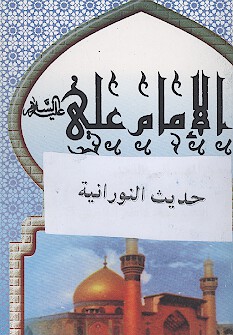 الإمام علي عليه السلام
حديث النورانية